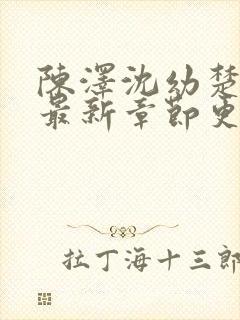 陳澤沈幼楚
最新章節更
拉丁海十三郎